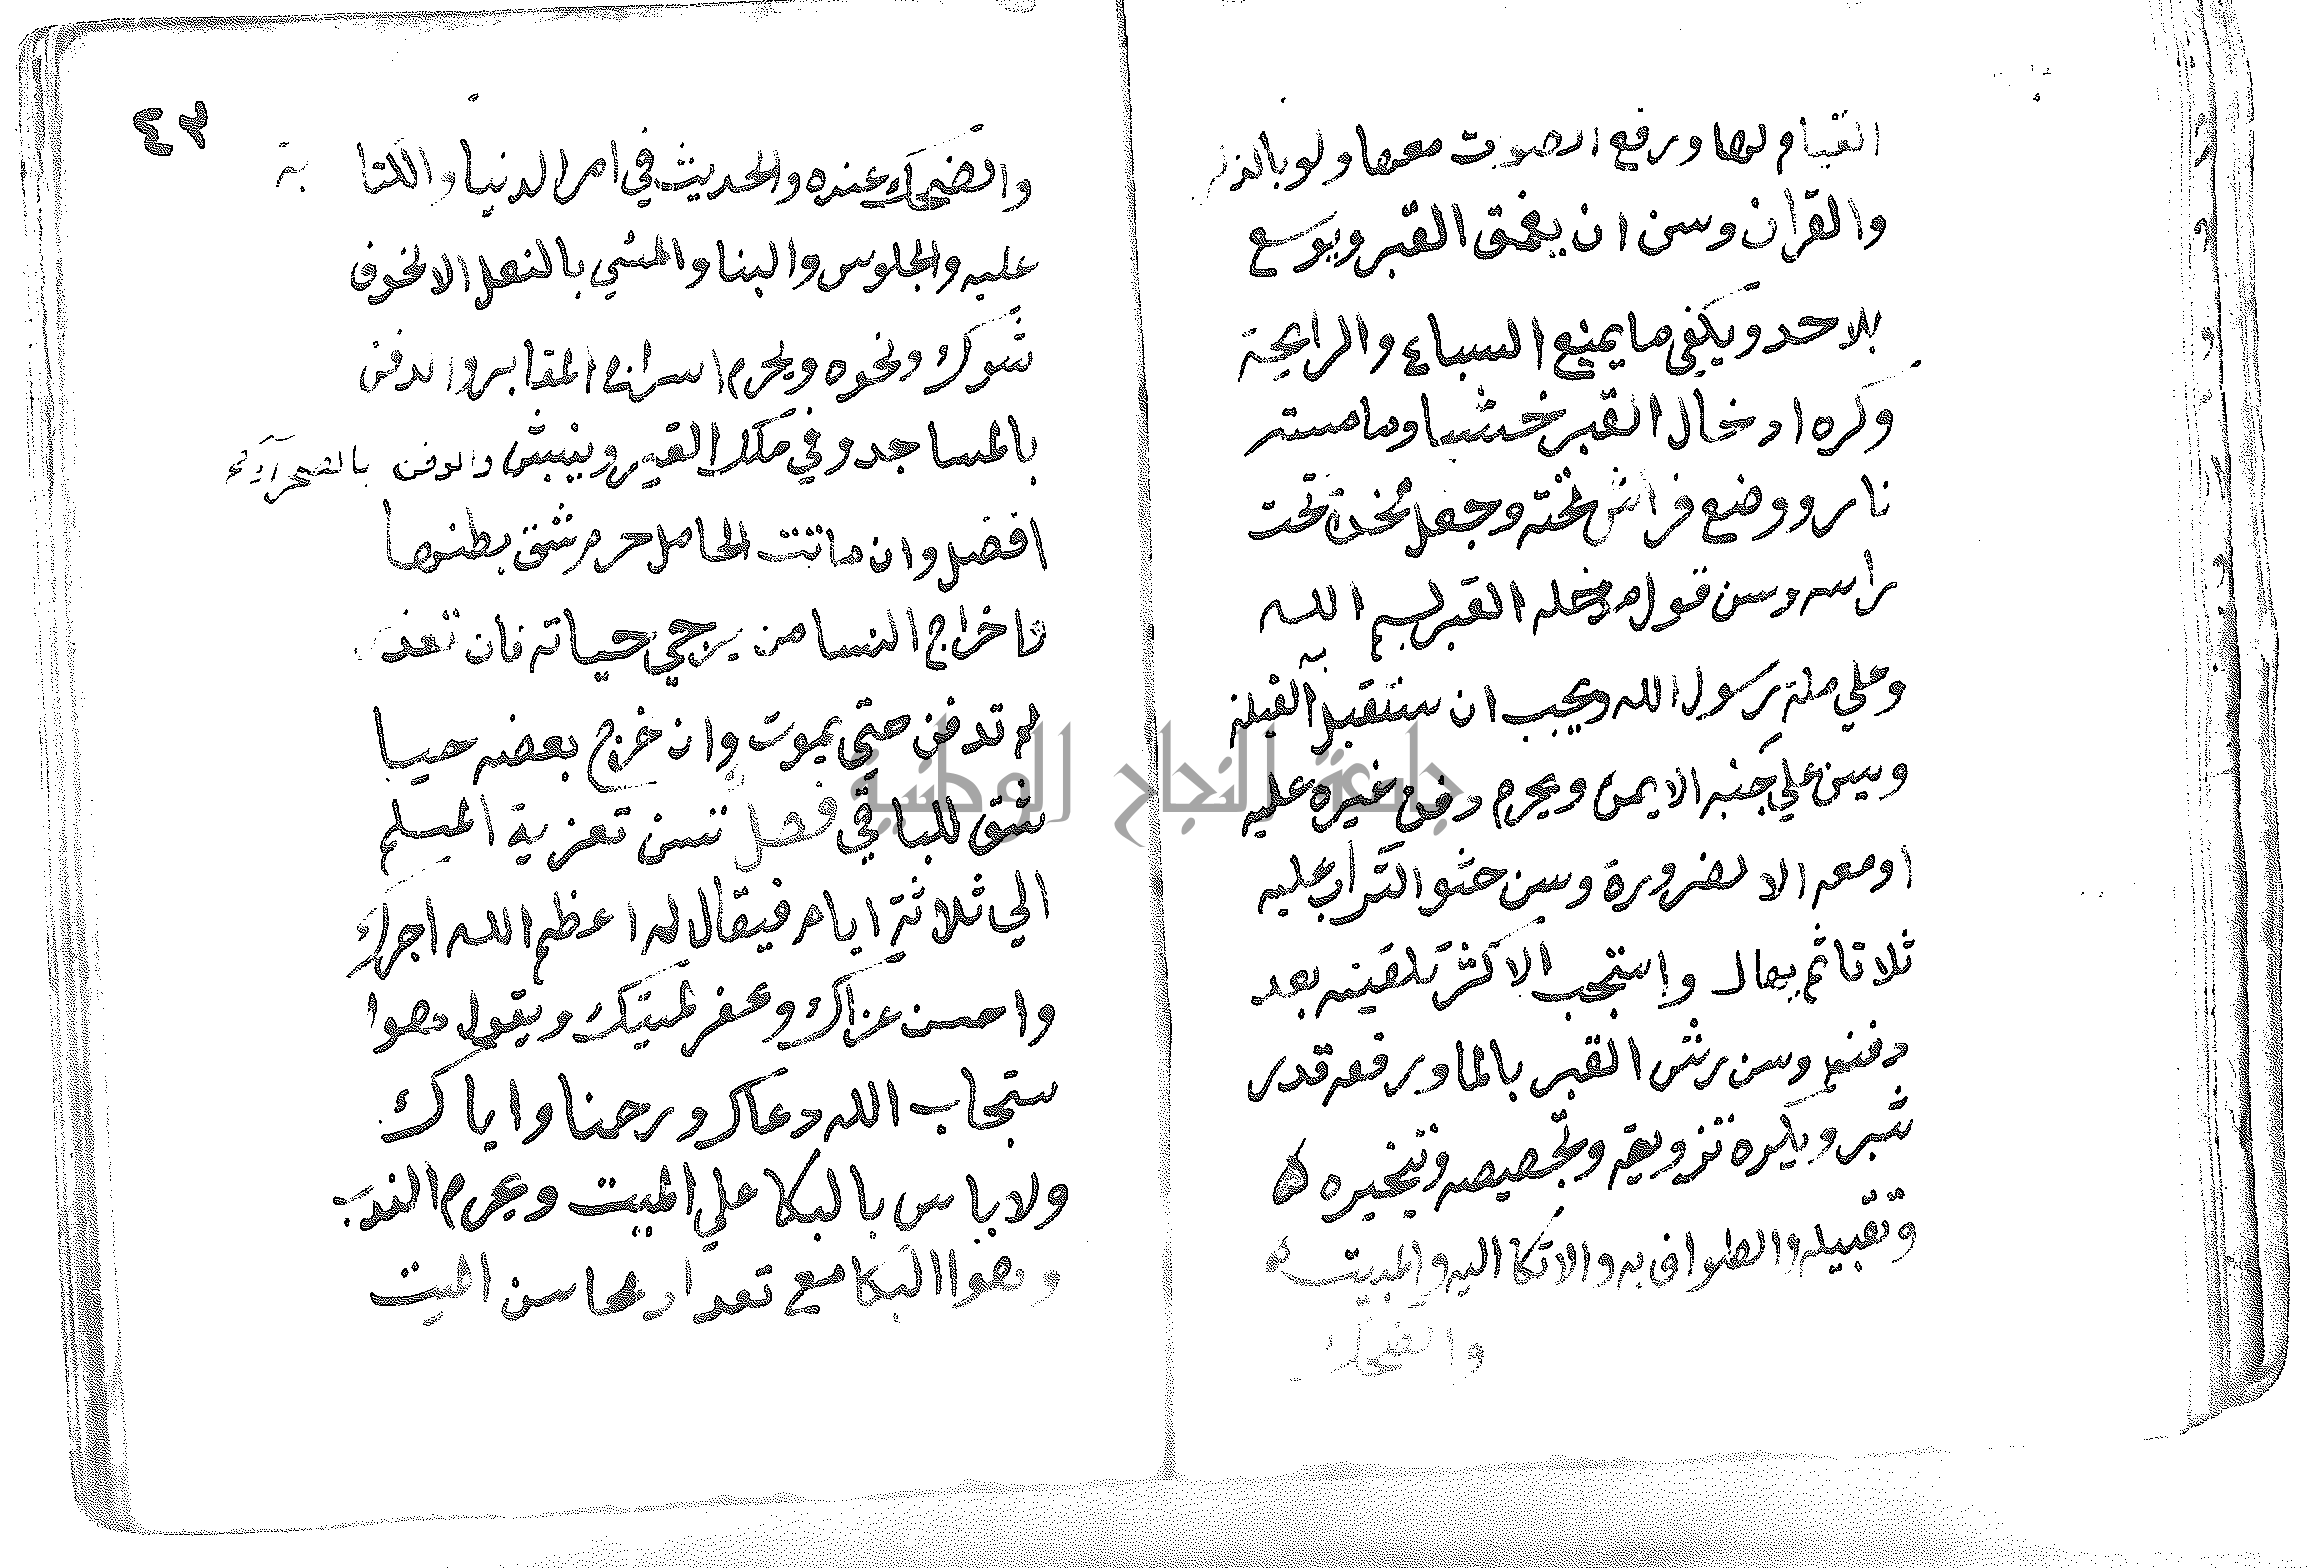 القيام لها ورفع الصوت معها ولو بالذكر
والقران وسن ان يعمق القبر ويوسع
بلا حد ويكفي ما يمنع السباع والرايحة
وكره ادخال القبر خشبا وما مسته
نار ووضع فراش تحته وجعل مخدة تحت
راسه وسن قول مدخله القبر بسم الله
وعلي ملة رسول الله ويجب ان يستقبل به القبلة
ويسن علي جنبه الايمن ويحرم دفن غيره عليه
او معه الا لضرورة ويسن حثو التراب عليه
ثلاثا ثم يهال واستحب الاكثر تلقينه بعد
دفنه وسن رش القبر بالما ورفعه قدر
شبر ويكره تزويقه وتجصيصه وتبخيره
وتقبيله والطواف به والاتكا اليه والمبيت
والضحك
٤٣
والضحك عنده والحديث في امر الدنيا والكتابة
عليه والجلوس والبنا والمشي بالنعل الا لخوف
شوك ونحوه ويحرم اسراج المقابر والدفن
بالمساجد وفي ملك الغير وينبش والدفن بالصحرآء
افضل وان ماتت الحامل حرم شق بطنها
واخراج النسا من يرجي حياته فان تعذر
لم تدفن حتي يموت وان خرج بعضه حيا
شق للباقي فصل تسن تعزية المسلم
الي ثلاثة ايام فيقال له اعظم الله اجرك
واحسن عزاك وغفر لميتك ويقول هوا
ستجاب الله دعاك ورحمنا واياك
ولا باس بالبكا علي الميت ويحرم الندب
وهوا البكا مع تعداد محاسن الميت
جامعة النجاح الوطنية